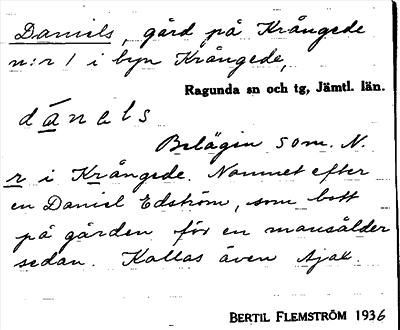 Daniels, gård på Krångede
n:r 1 i byn Krångede,
Ragunda sn och tg, Jämtl. län.
dánels
Belägen som. N.
r i Krångede. Namnet efter
en Daniel Edström, som bott
på gården för en mansålder
sedan. Kallas även Ajak.
BERTIL FLEMSTRÖM 1936